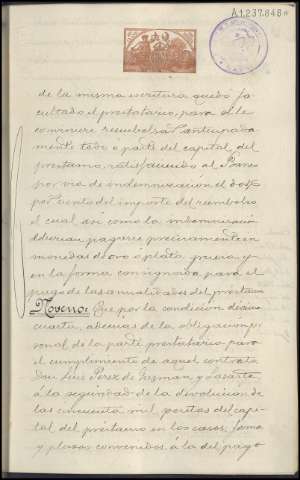 A1.237.848*
de la misma escritura quedó fa-
cultado el prestatario, para si le
conviniere reembolsar anticipada-
mente todo o parte del capital del
préstamo, satisfaciendo al Banco
por vía de indemnización el dos
por ciento del importe del reembolso
el cual así como la indemnización
deberían pagarse precisamente en
monedas de oro o plata gruesa y
en la forma consignada para el
pago de las anualidades del préstamo
Noveno: Que por la condición décimo
cuarta, además de la obligación per-
sonal de la parte prestataria para
el cumplimiento de aquel contrato
Don Luis Pérez de Guzmán y Lasarte
á la seguridad de la devolución de
las cincuenta mil pesetas del capi-
tal del préstamo en los casos, forma
y plazos convenidos, á la del pago